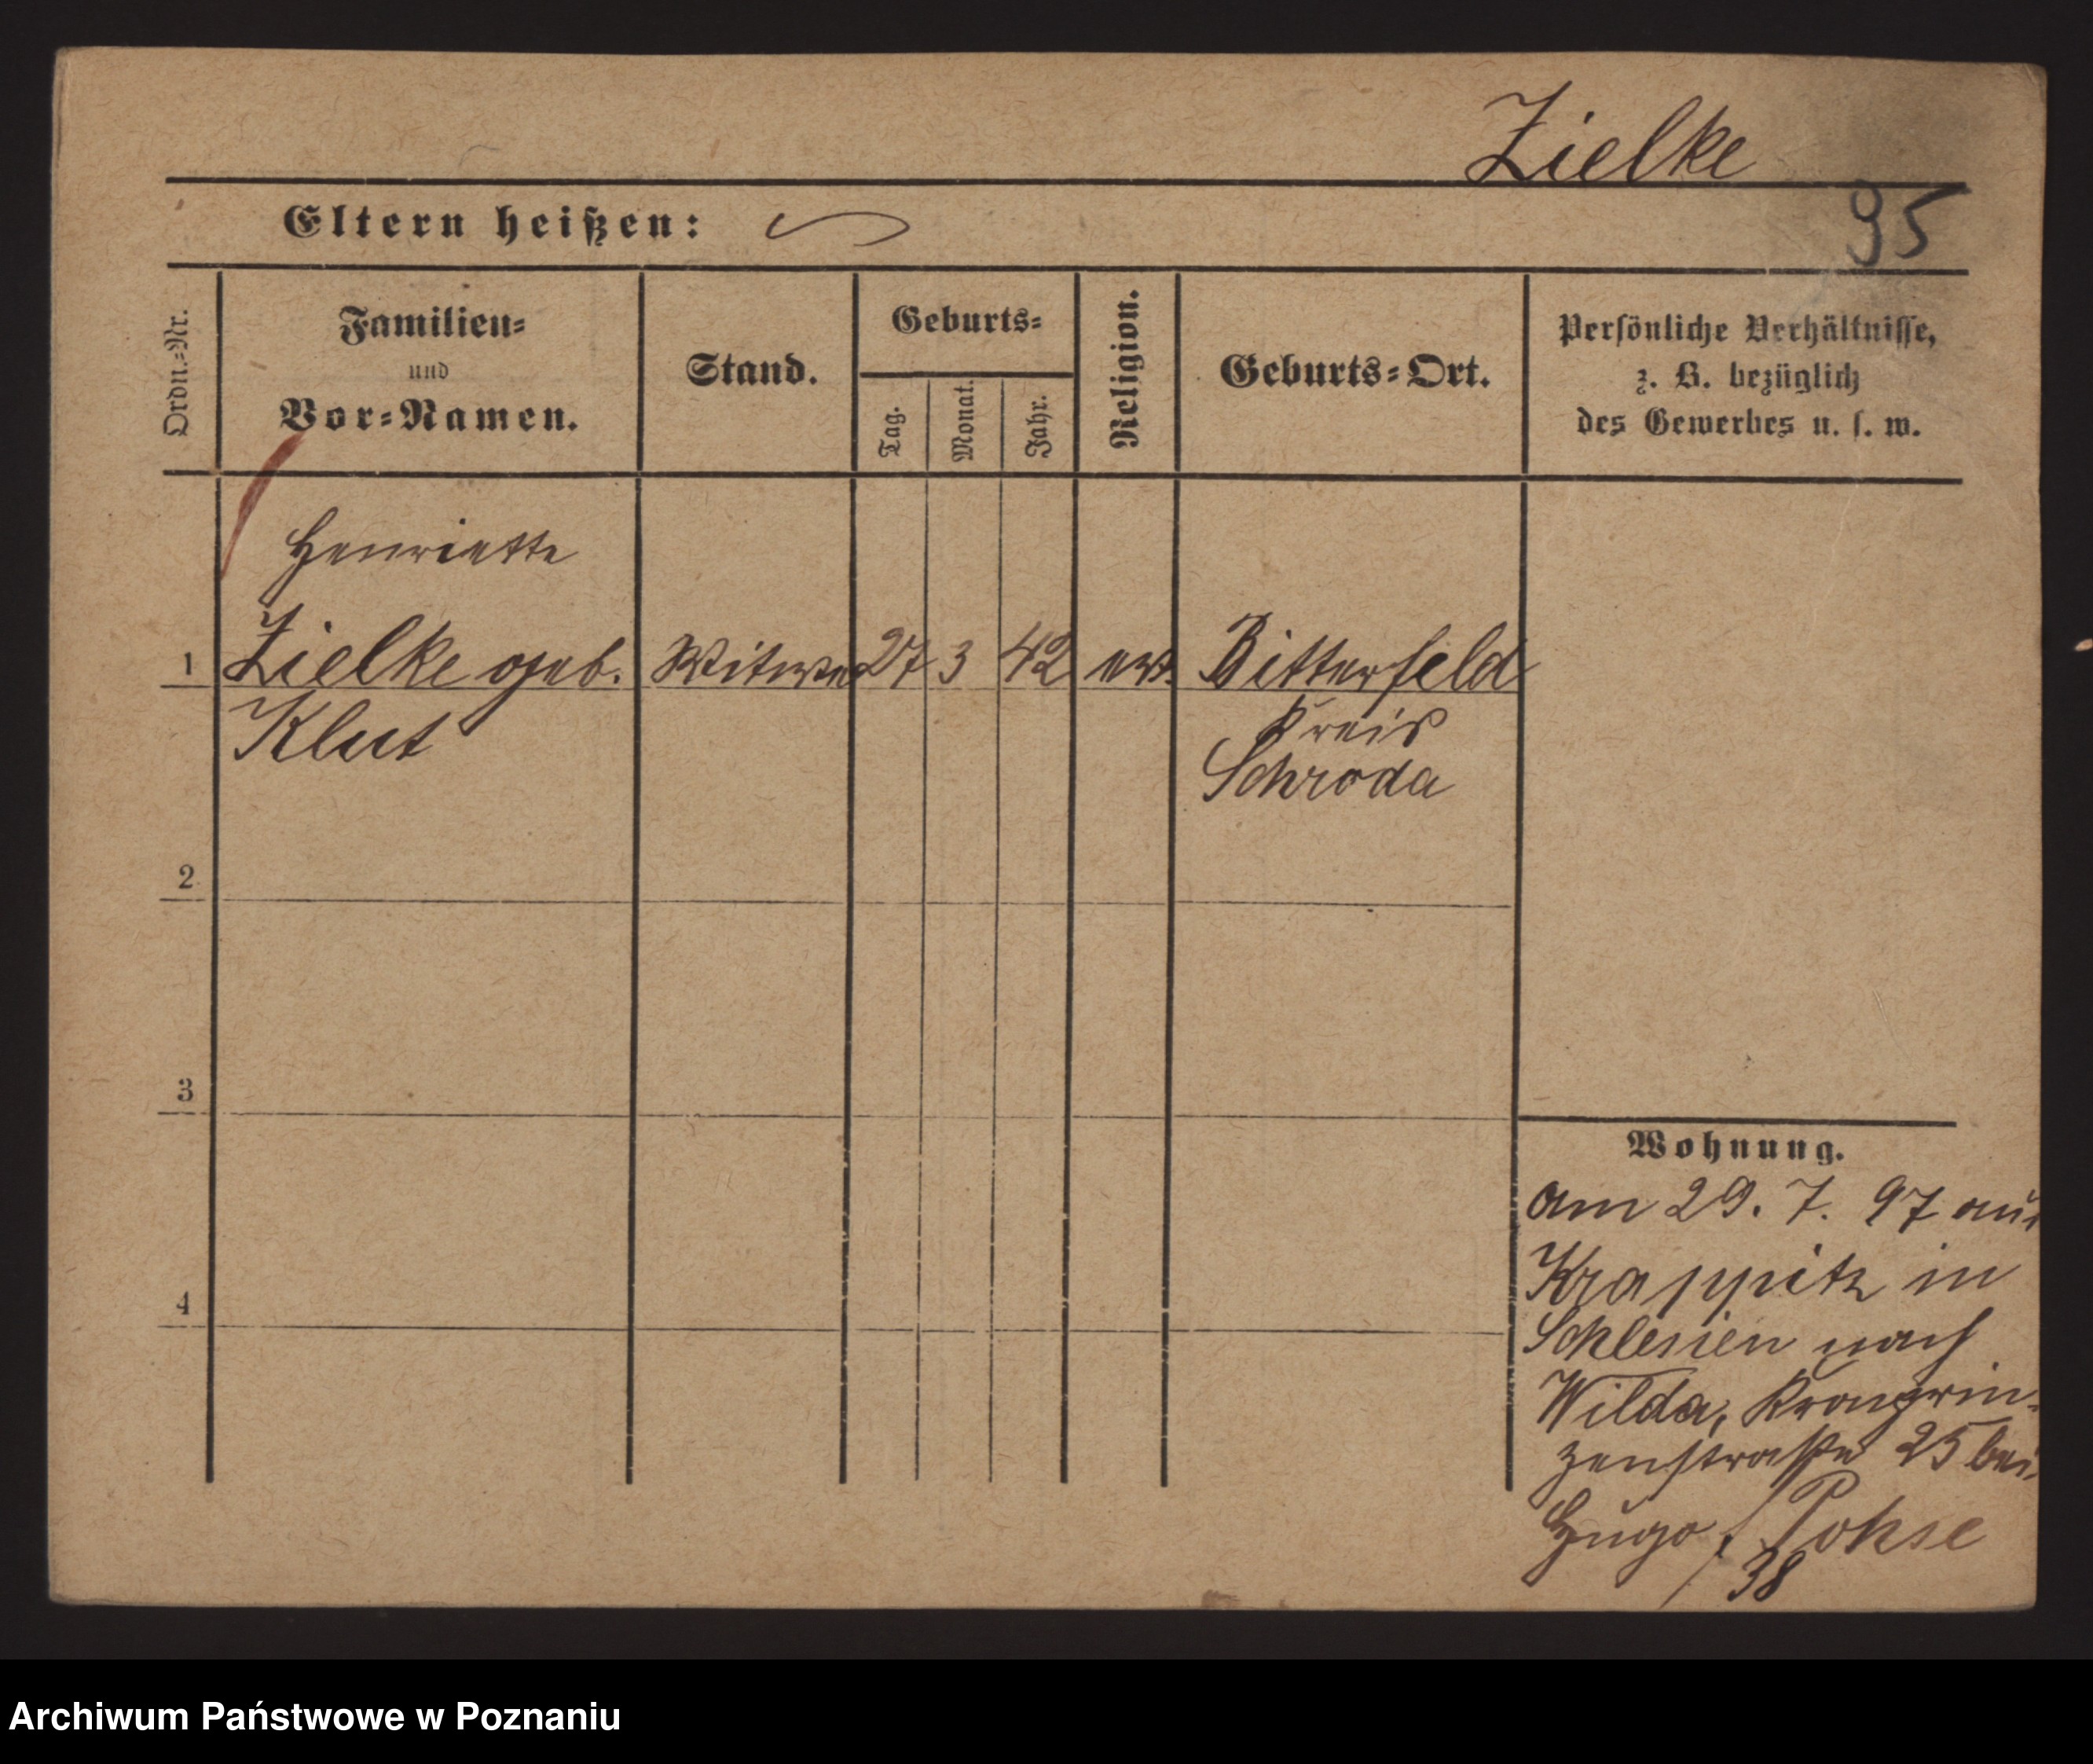 Zielke
95
Eltern heißen:
Ordn.=Nr.
Familien=
und
Vor=Namen.
Stand.
Geburts=
Tag.
Monat.
Jahr.
Religion.
Geburts=Ort.
Persönliche Verhältnisse,
z. B. bezüglich
des Gewerbes u. s. w.
Henriette
1 Zielke geb. Witwe 27 3 42 ev. Bitterfeld
Klut
Kreis
Schroda
2
3
4
Wohnung.
am 29. 7. 97 aus
Krappitz in
Schlesien nach
Wilda, Kronprin-
zenstraße 25 bei
Hugo Pohse
38
Archiwum Państwowe w Poznaniu